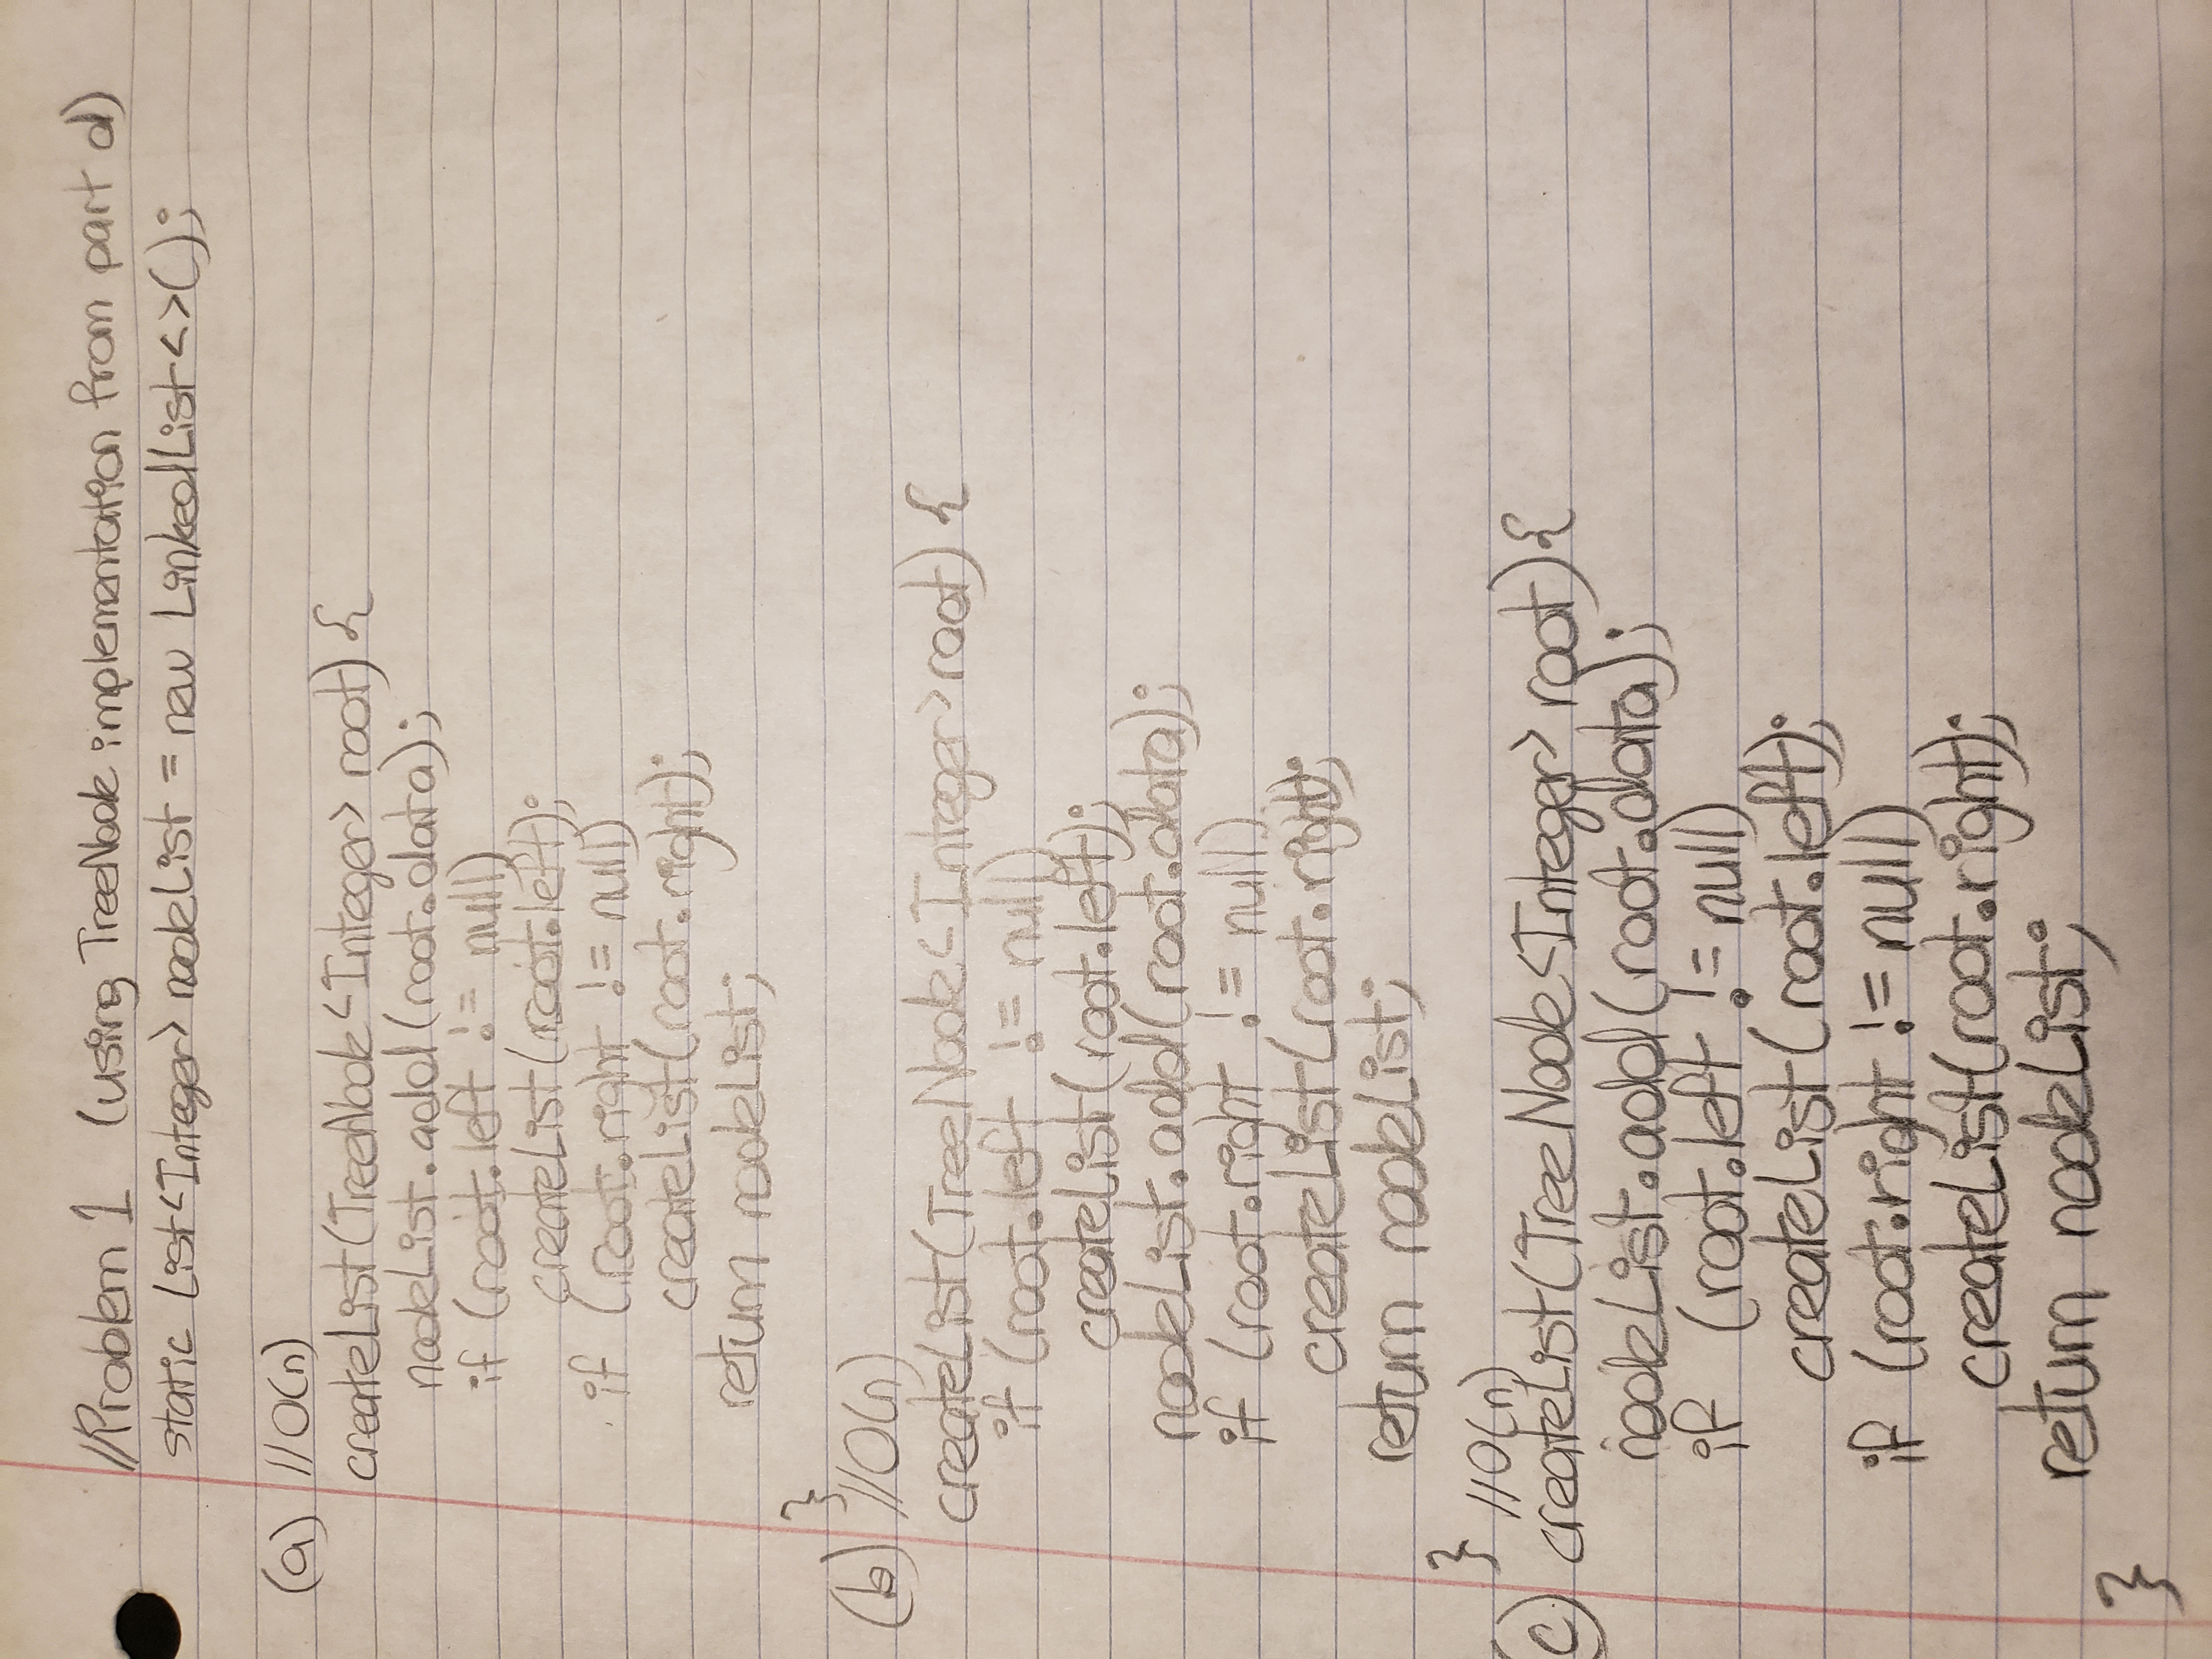 //Problem 1 (using TreeNode implementation from part d)
static List<Integer> nodeList = new LinkedList<>();
(a) //O(n)
createList(TreeNode<Integer> root) {
nodeList.add(root.data);
if (root.left != null)
createList(root.left);
if (root.right != null)
createList(root.right);
return nodeList;
}
(b) //O(n)
createList(TreeNode<Integer> root) {
if (root.left != null)
createList(root.left);
nodeList.add(root.data);
if (root.right != null)
createList(root.right);
return nodeList;
} //O(n)
(c) createList(TreeNode<Integer> root){
nodeList.add(root.data);
if (root.left != null)
createList(root.left);
if (root.right != null)
createList(root.right);
return nodeList;
}